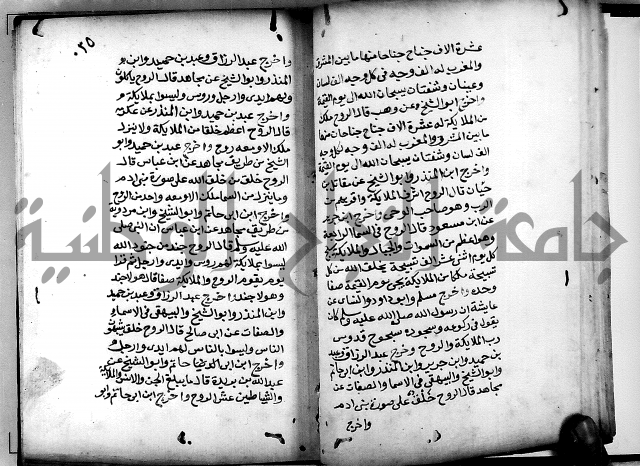 عشرة الاف جناح جناحا منها ما بين المشرق
والمغرب له الف وجه في كل وجه الف لسان
وعينان وشفتان يسبحان الله الى يوم القيمة
واخرج ابو الشيخ عن وهب قال الروح ملك
من الملايكة له عشرة الاف جناح جناحان منها
ما بين المشرق والمغرب له الف وجه لكل وجه
الف لسان وشفتان يسبحان الله الى يوم القيمة
واخرج ابن المنذر وابو الشيخ عن مقاتل بن
حيان قال الروح اشرف الملايكة واقربهم من
الرب وهو صاحب الوحي واخرج ابن جرير
عن ابن مسعود قال الروح في السماء الرابعة
وهو اعظم من السموات والجبال والملايكة يسبح
كل يوم اثنى عشر الف تسبيحة يخلق الله من كل
تسبيحة ملكا من الملايكة يجي يوم القيمة صفا
وحده واخرج مسلم وابو داود والنساى عن
عايشة ان رسول الله صلى الله عليه وسلم كان
يقول في ركوعه وسجوده سبوح قدوس
رب الملايكة والروح واخرج عبد الرزاق وعبد
بن حميد وابن جرير وابن المنذر وابن ابي حاتم
وابو الشيخ والبيهقي في الاسما والصفات عن
مجاهد قال الروح خلق على صورة بني ادم
واخرج
٠٣٥
واخرج عبد الرزاق وعبد بن حميد وابن
المنذر وابو الشيخ عن مجاهد قال الروح ياكلون
ولهم ايدى وارجل وروس وليسوا بملايكة
واخرج عبد بن حميد وابن المنذر عن عكرمة
قال الروح اعظم خلقا من الملايكة ولا ينزل
ملك الا ومعه روح واخرج عبد بن حميد وابو
الشيخ من طريق مجاهد عن ابن عباس قال
الروح خلق من خلق الله على صورة بني ادم
وما ينزل من السما ملك الا ومعه واحد من الروح
واخرج ابن ابي حاتم وابو الشيخ وابن مردويه
من طريق مجاهد عن ابن عباس ان النبي صلى
الله عليه وسلم قال الروح جند من جنود الله
ليسوا بملايكة لهم روس وايدى وارجل ثم قرا
يوم يقوم الروح والملايكة صفا قال هولا جند
وهولا جند واخرج عبد الرزاق وعبد بن حميد
وابن المنذر وابو الشيخ والبيهقي في الاسماء
والصفات عن ابى صالح قال الروح خلق يشبهو
الناس وليسوا بالناس لهم ايدى وارجل
واخرج ابن ابي حاتم وابو الشيخ عن
عبد الله بن بريدة قال ما يبلغ الجن والانس والملايكة
والشياطين عشر الروح واخرج ابن ابي حاتم وابو
جامعة الرياض الوطنية